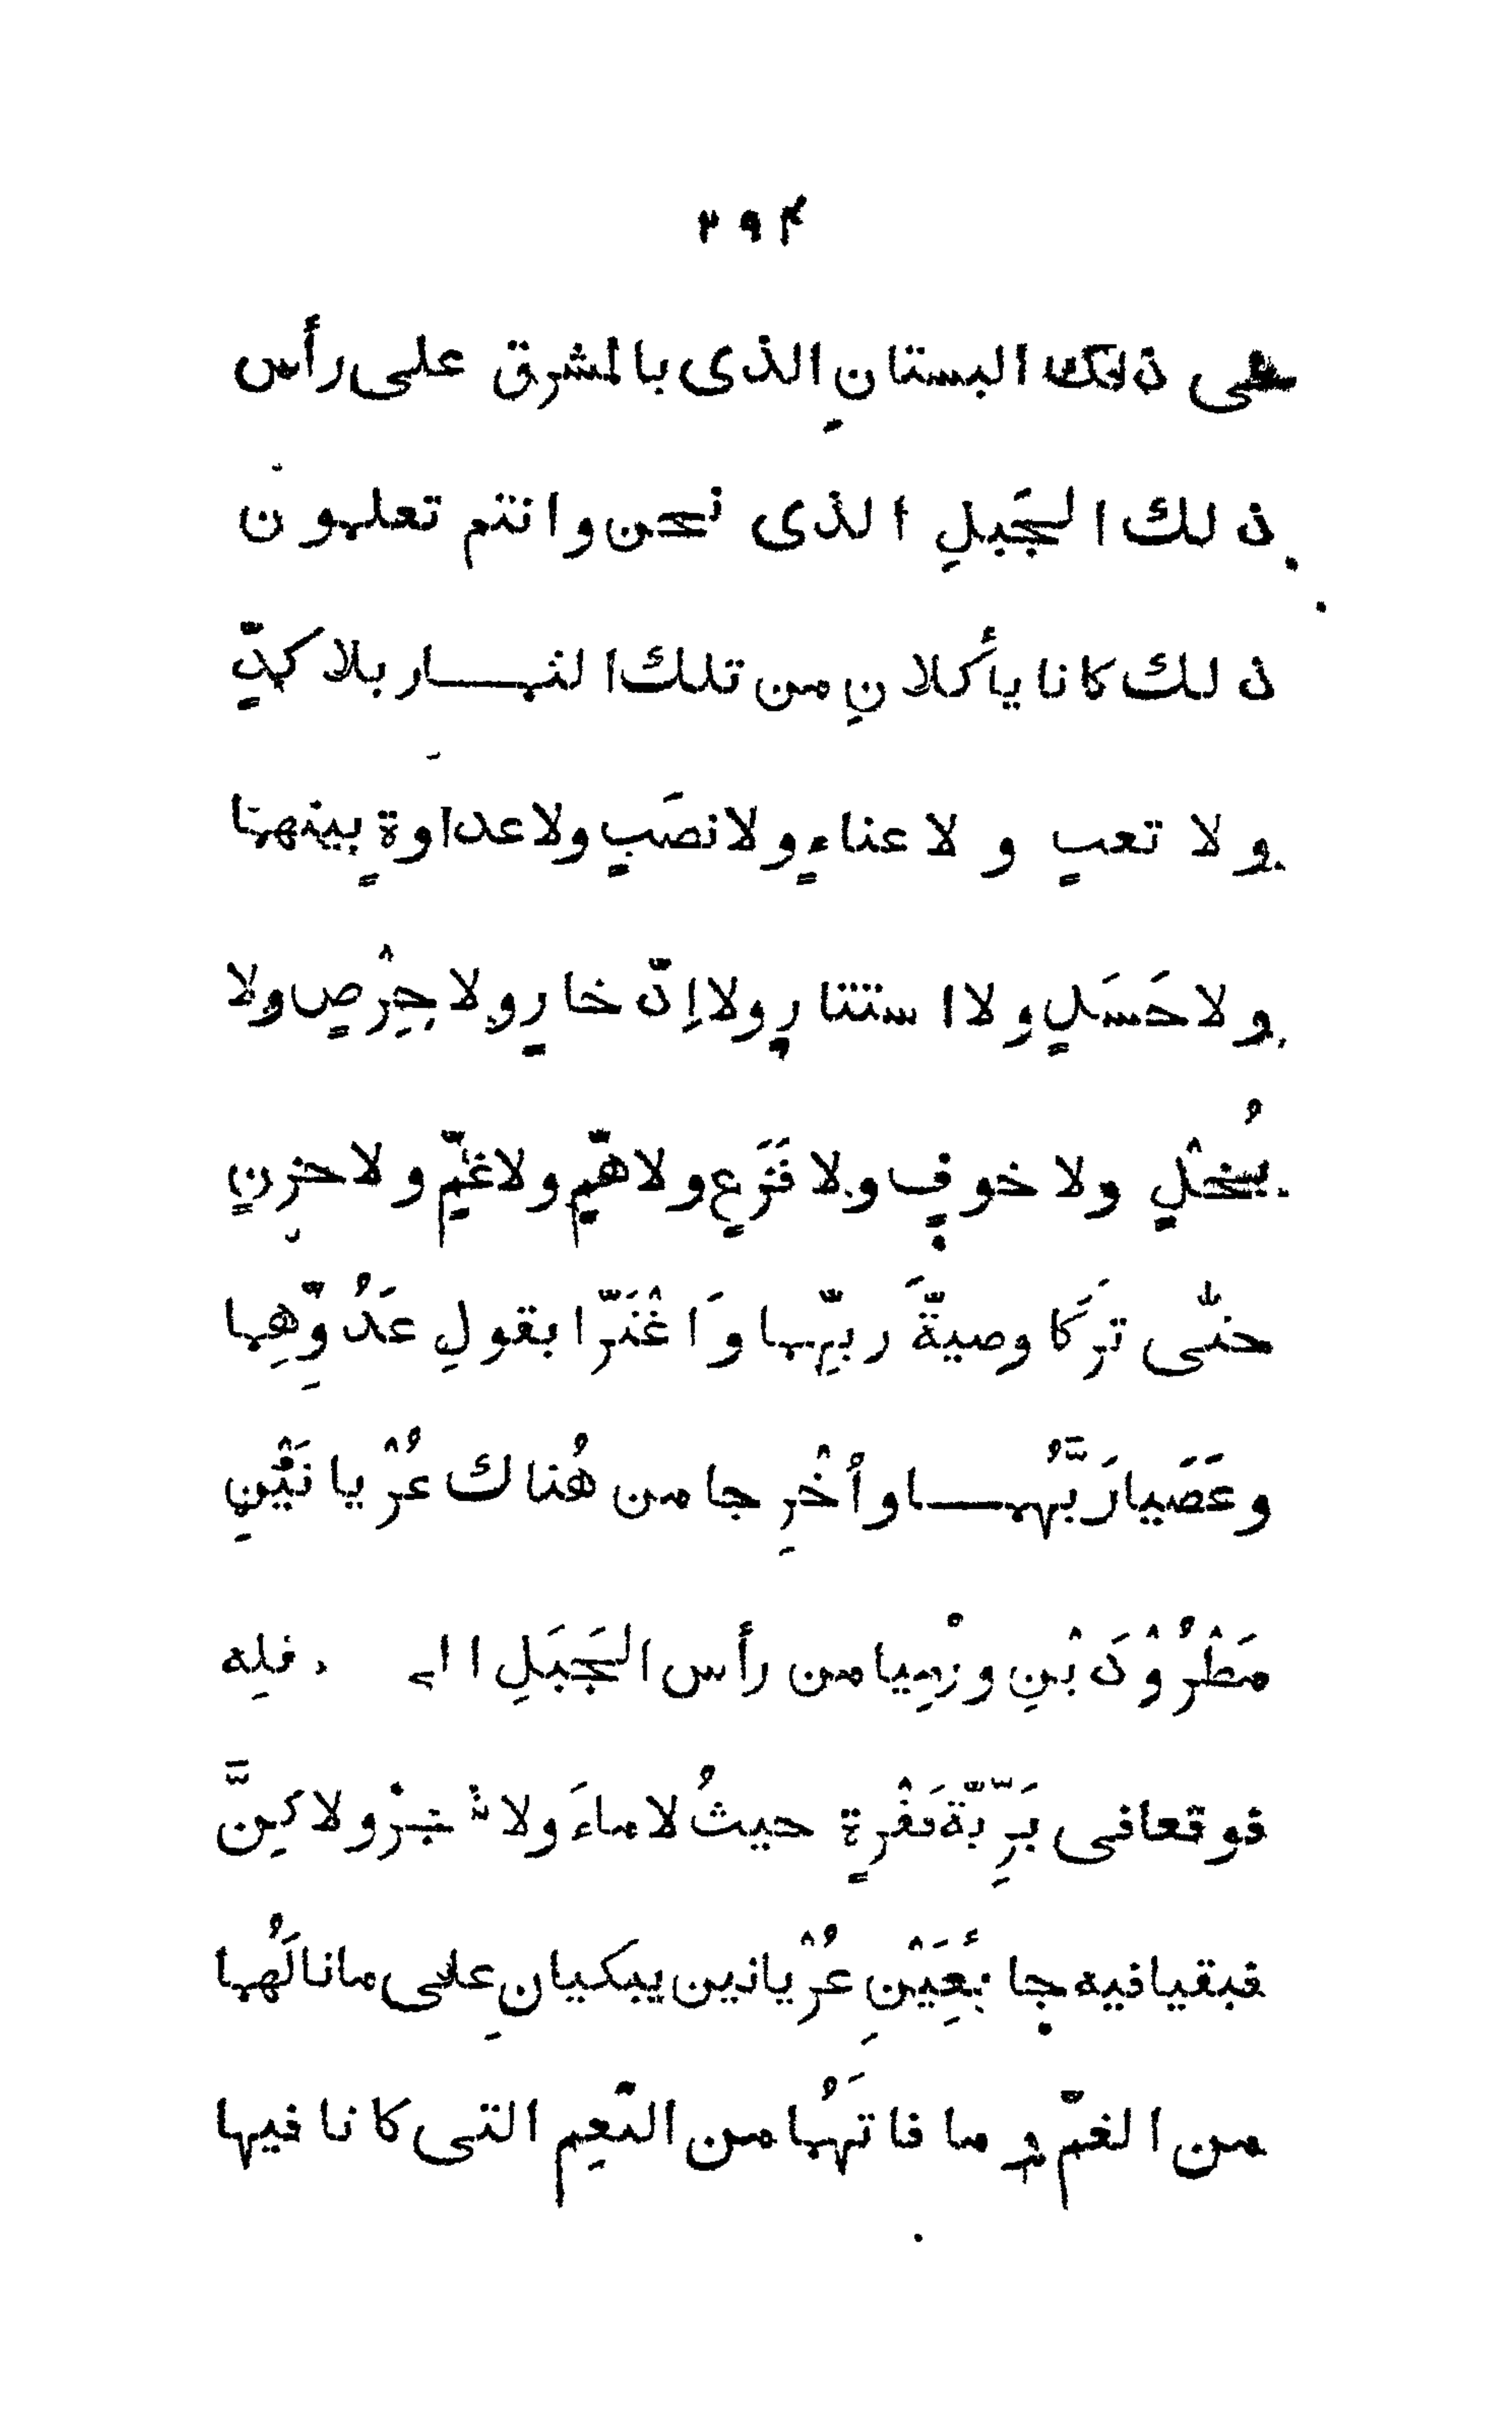 ٢٩۴
في ذلك البستانِ الذى بالمشرق على رأس
ذلك الجَبلِ الذى نحن وانتم تعلمون
ذلك كانا يأكلانِ من تلك الثمـــار بلا كدٍّ
ولا تعبٍ ولا عناءٍ ولا نصَبٍ ولا عداوةٍ بينهما
ولا حَسَدٍ ولا استتارٍ ولا اِدّخارٍ ولا حِرْصٍ ولا
بُخْلٍ ولا خوفٍ ولا فَزَعٍ ولا همٍّ ولا غمٍّ ولا حزنٍ
حتّى تَركَا وصيةَّ ربِّهما وَاغْتَرّا بقولِ عَدُوِّهِما
وعَصَيا رَبَّهُمـــا وأُخْرِجا من هُناك عُرْيانَيْنِ
مَطْرُوْدَيْنِ ورُمِيا من رأس الجَبَلِ الى فله
فوقعا فى بَرِّيّة قَفْرةٍ حيثُ لا ماءَ ولا شجرْ ولا كِنَّ
فبقيا فيه جائِعَيْنِ عُرْيانين يبكيانِ على ما نالَهُما
من الغمّ وما فاتَهُما من النّعِم التى كانا فيها